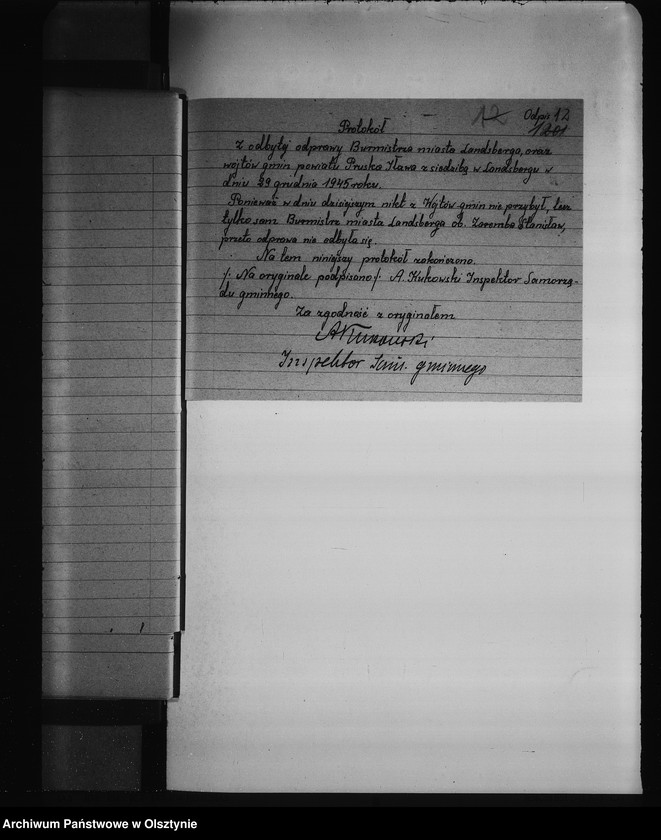 12 Odpis 12
1201
Protokół
Z odbytej odprawy Burmistrza miasta Landsberga, oraz
wojtów gmin powiatu Pruska Iława z siedzibą w Landsbergu w
dniu 29 grudnia 1945 roku.
Ponieważ w dniu dzisiejszym nikt z Wojtów gmin nie przybył, lecz
tylko sam Burmistrz miasta Landsberga ob. Zaremba Stanisław,
przeto odprawa nie odbyła się.
Na tem niniejszy protokół zakończono.
/: Na oryginale podpisano /: A. Kukowski Inspektor Samorzą-
du gminnego.
Za zgodność z oryginałem
AKukowski
Inspektor Sam. gminnego
Archiwum Państwowe w Olsztynie